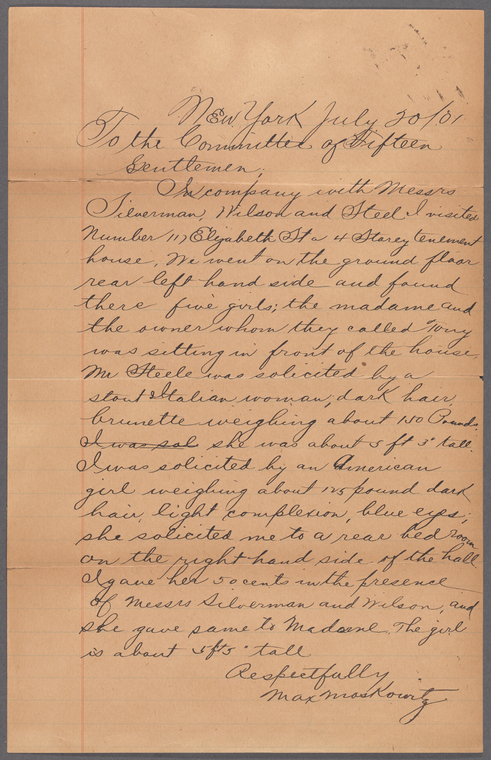 New York July 20/01
To the Committee of Fifteen
Gentlemen;
In company with Messrs
Silverman, Wilson and Steel I visited
Number 117 Elizabeth St a 4 Storey tenement
house, We went on the ground floor
rear left hand side and found
there five girls; the madame and
the owner whom they called Tony
was sitting in front of the house,
Mr Steele was solicited by a
stout Italian woman, dark hair,
brunette weighing about 150 Pounds.
I was sol she was about 5 ft 3" tall.
I was solicited by an American
girl weighing about 125 pound dark
hair, light complexion, blue eyes;
she solicited me to a rear bed room
on the right hand side of the hall
I gave her 50 cents in the presence
of Messrs Silverman and Wilson, and
she gave same to Madame. The girl
is about 5 ft 5" tall
Respectfully
Max Moskowitz